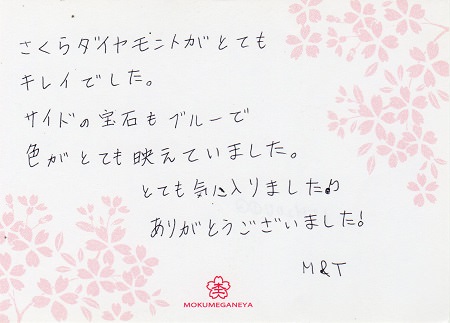 さくらダイヤモンドがとても
キレイでした。
サイドの宝石もブルーで
色がとても映えていました。
とても気に入りました♪
ありがとうございました!
M&T
MOKUMEGANEYA